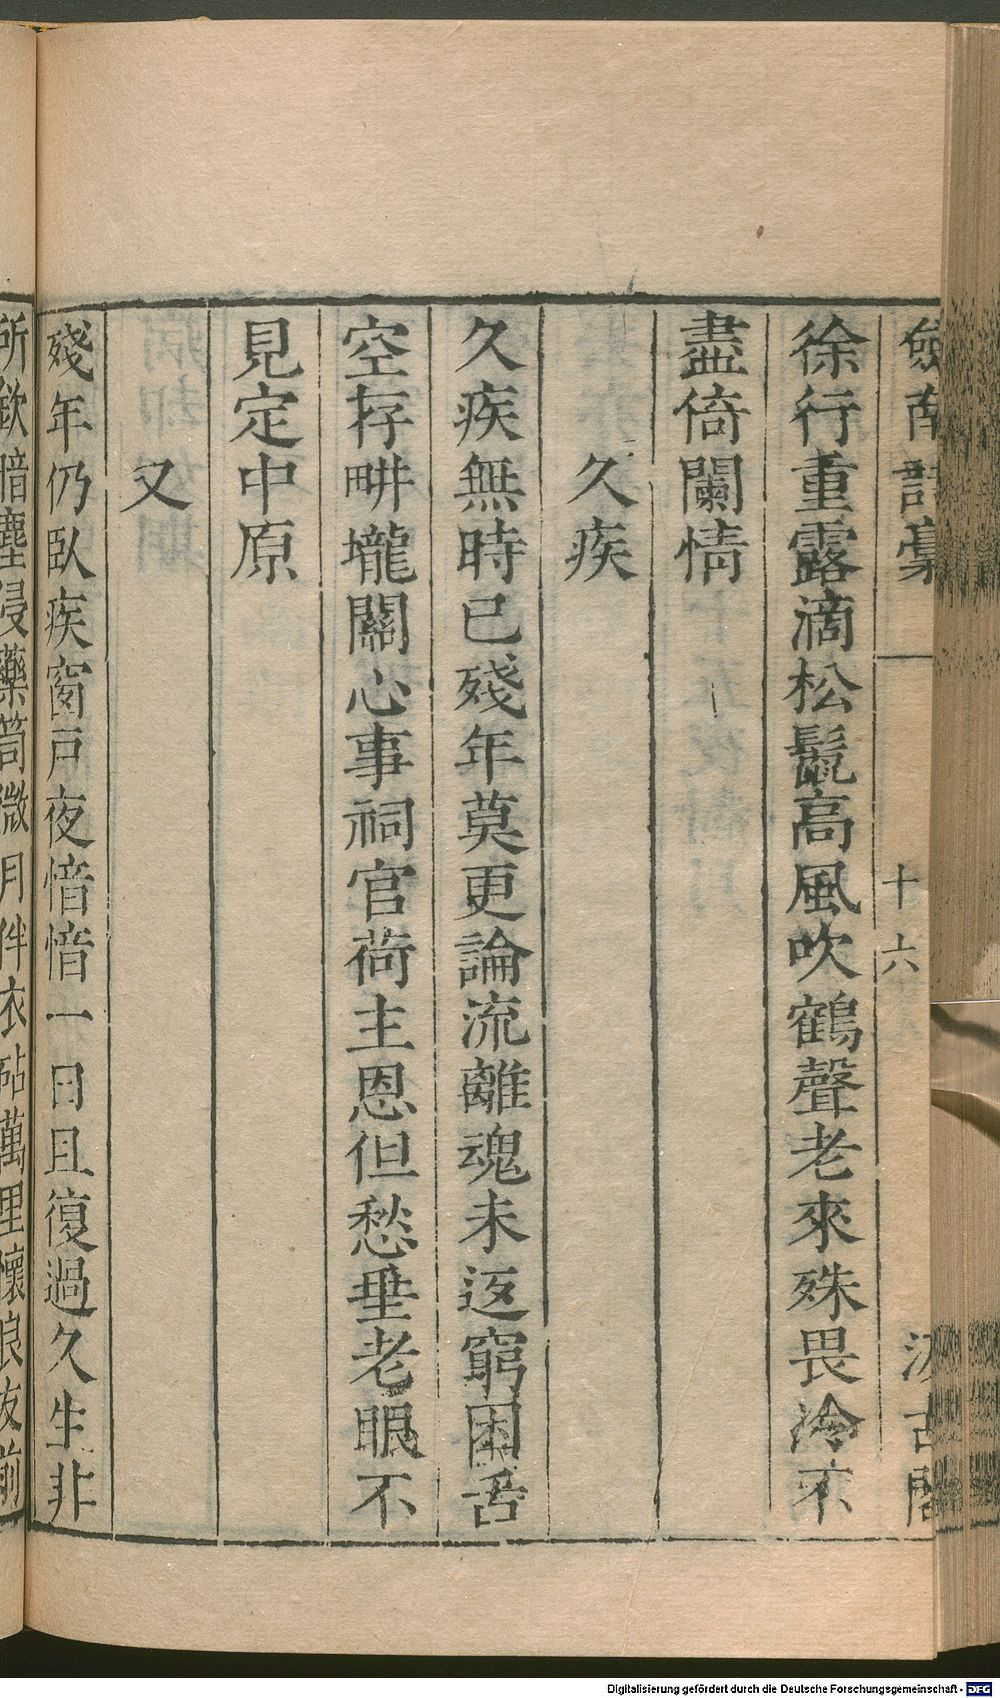 劒南詩稾 十六 汲古閣
徐行重露滴松鬣高風吹鶴聲老來殊畏冷不
盡倚闌情
久疾
久疾無時已殘年莫更論流離魂未返窮困舌
空存畊壠關心事祠官荷主恩但愁垂老眼不
見定中原
又
殘年仍臥疾窗戸夜愔愔一日且復過久生非
所欽暗塵侵藥笥微月伴衣砧萬里懷良友前
Digitalisierung gefördert durch die Deutsche Forschungsgemeinschaft - DFG